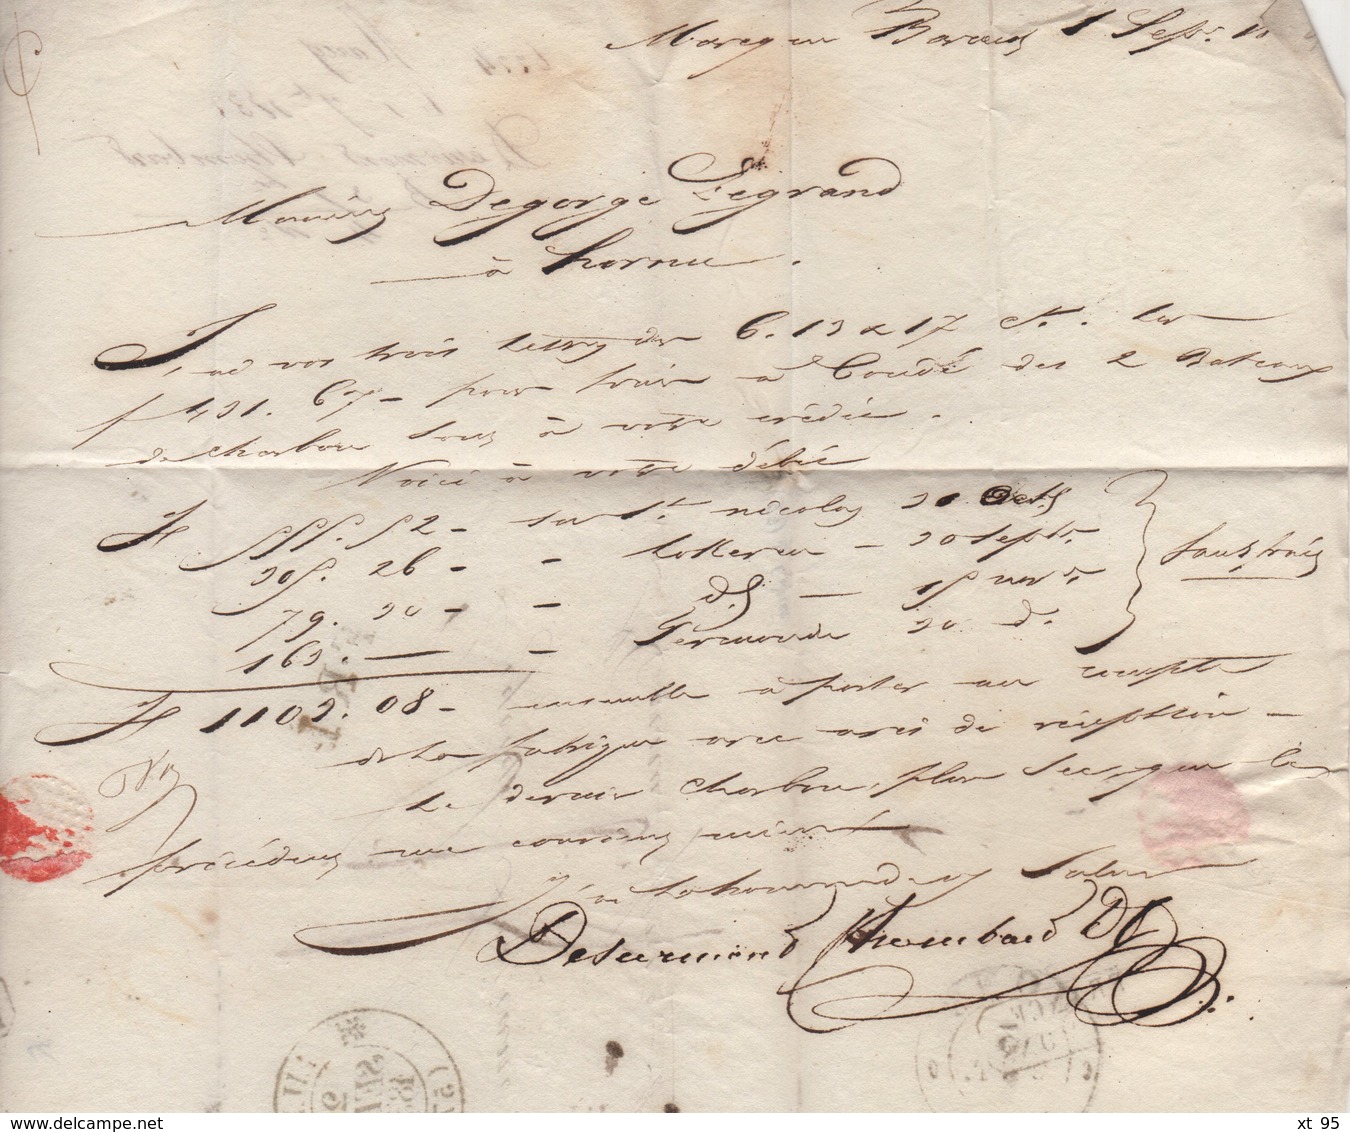 Marcq en Baroeul 1 Sept.
Messieurs Degorge Legrand
à hornu.
J'ai vos trois lettres des 6. 13 & 17 Ct. Les
f 431. 67 - pour frais à Condé des 2 Bateaux
de charbon sont à votre crédit.
Voici à votre débit
F 555. 52 - sur St. nicolas 31 Oct.
305. 26 - - Lokeren - 30 Septe.
79. 30 - - do - 15 nov.
163. — - Termonde 30 do.
Sans frais
F 1103. 08 - ensemble à porter au compte
de la fabrique avec avis de réception -
Le dernier charbon, plus sec, que les
précédens me convient mieux
J'ai l'honneur de vous saluer
Desurmont Thombard
delcampe.net
xt 95